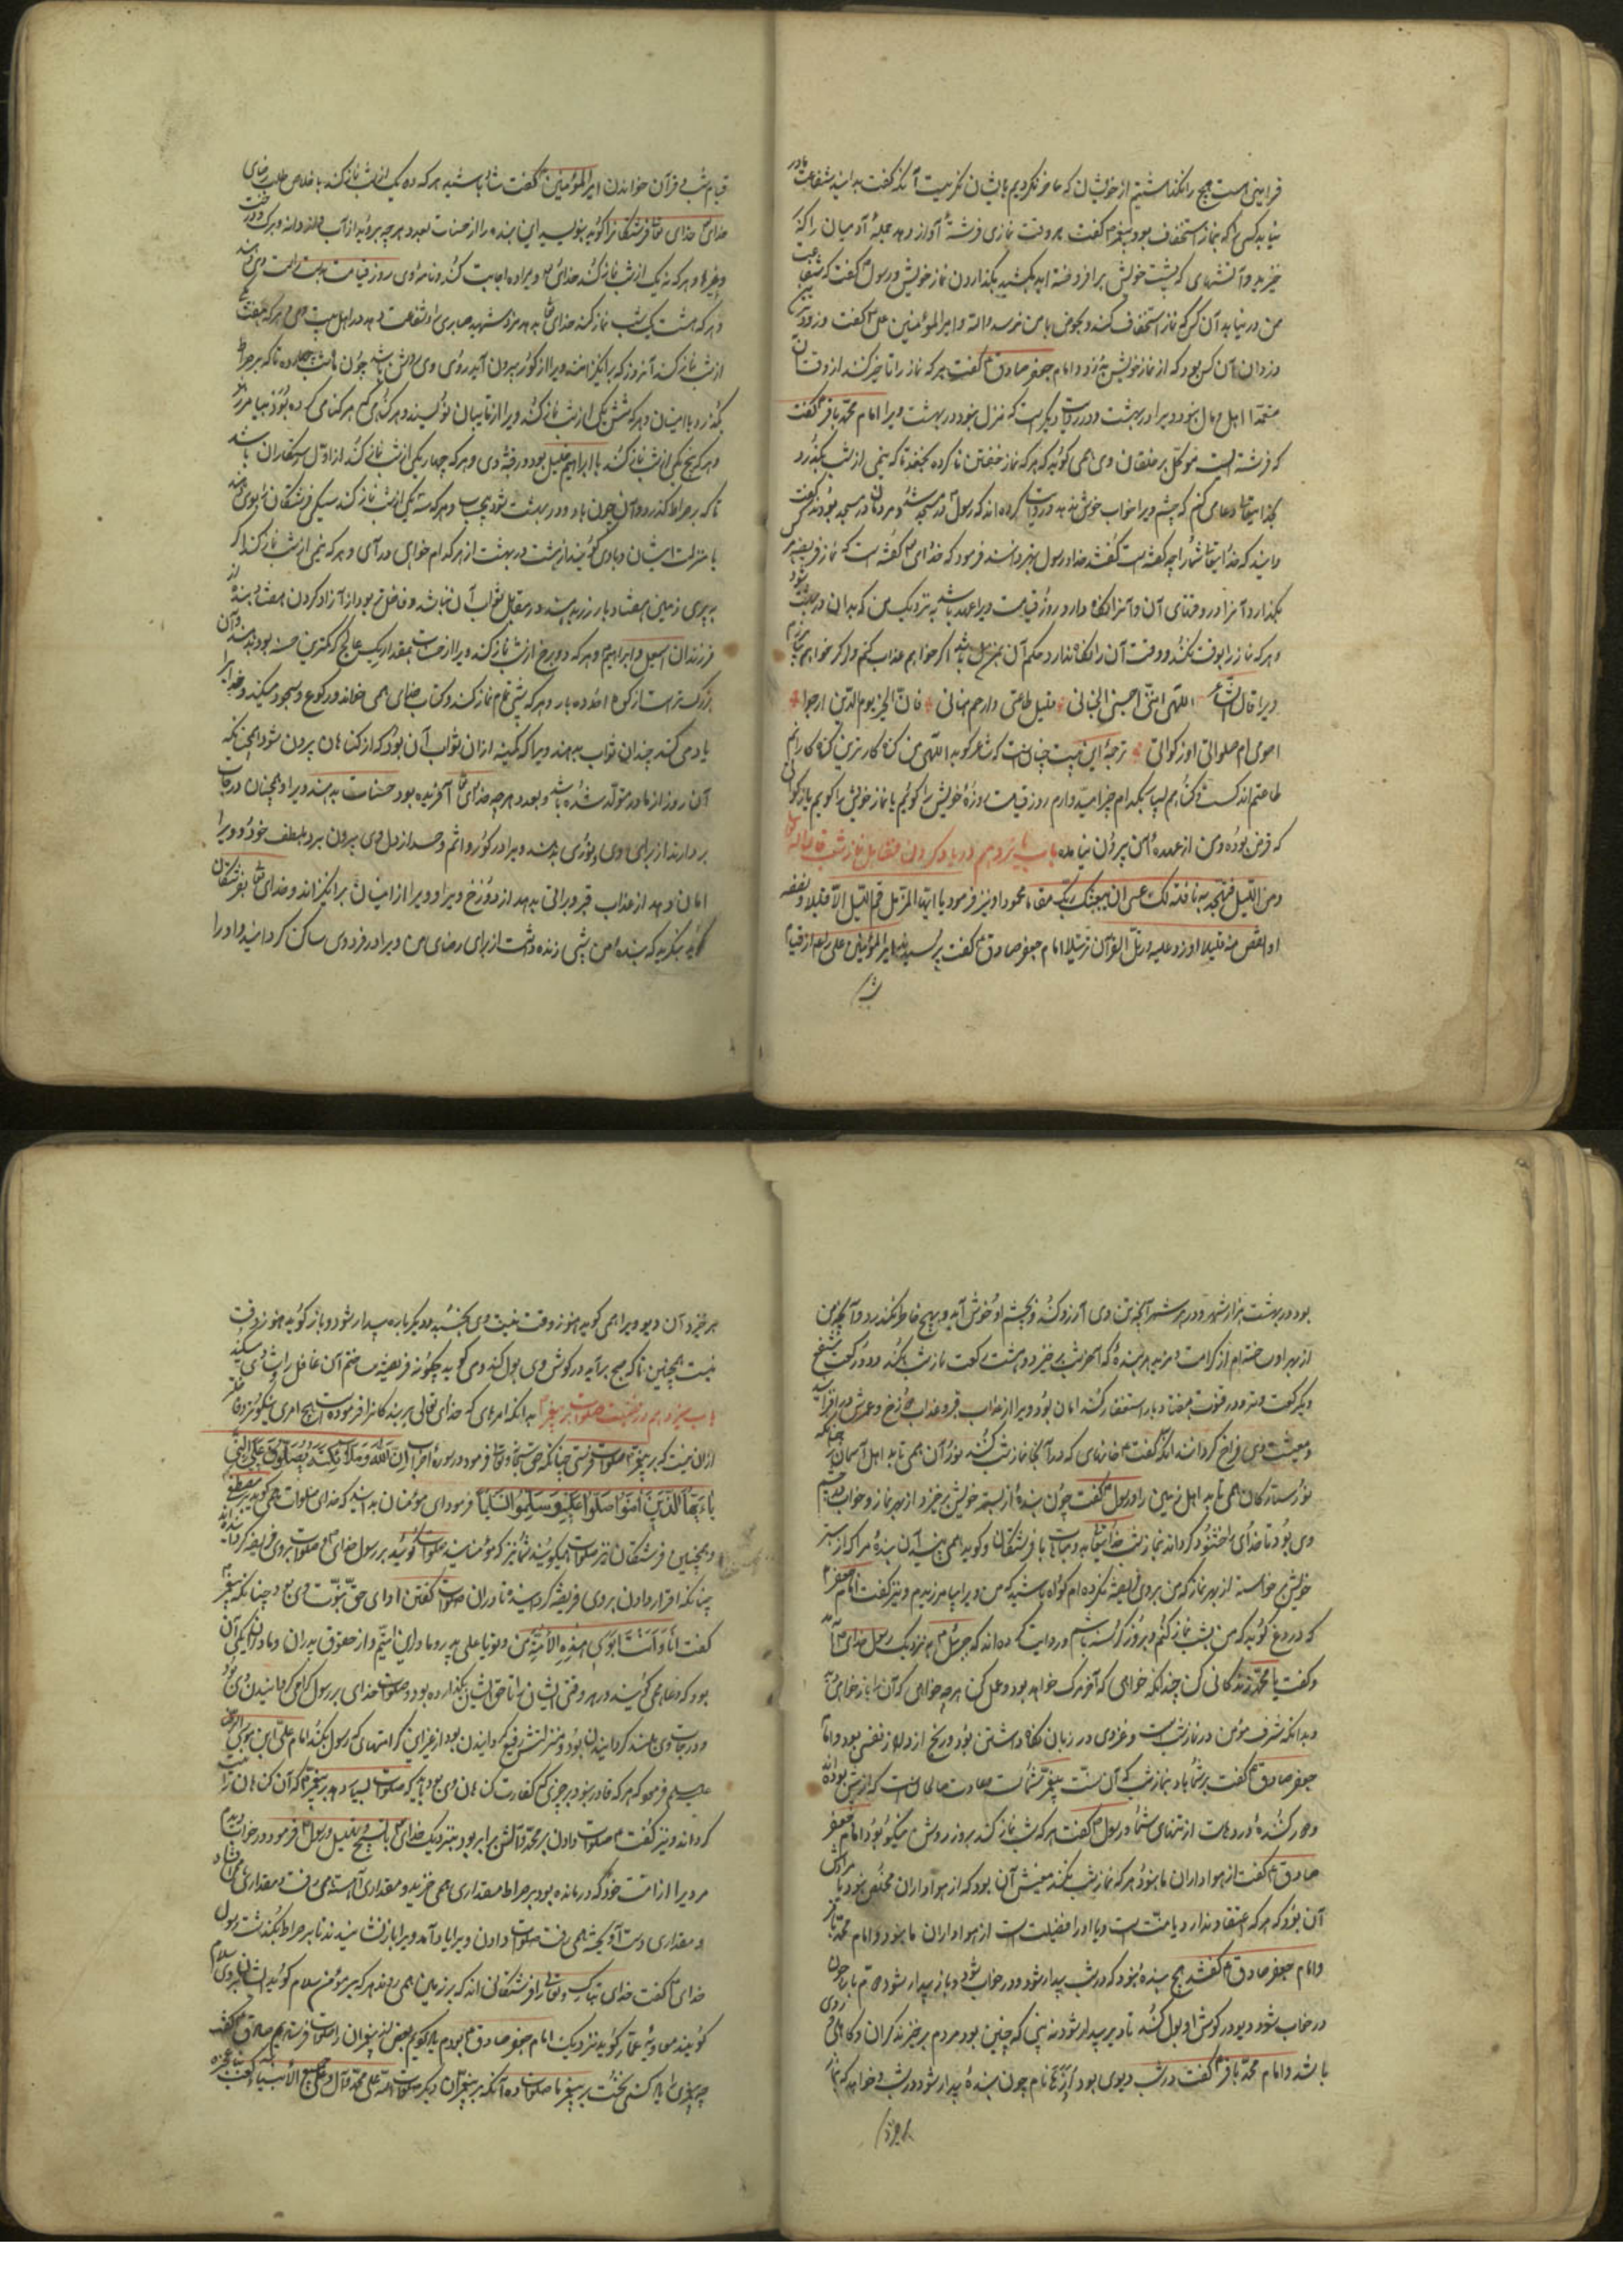 فرامینی است هیچ را نگذاشتیم از خویشان که حاضر نکردیم باایشان نگریست آنکه گفت بدانید شفاعت ما در
نیابد کسی که نماز استخفاف بود و پیغمبر گفت هر وقت نمازی فرشتهٔ آواز دهد جملهٔ آدمیان را که
خیزید و آتشهای که پشت خویش برافروخته اید بکشید بگذاردن نماز خویش و رسول گفت که شفاعت
من در نیابد آن کس که نماز استخفاف کند و بحوض با من نرسد والله و امیر المؤمنین علی گفت دزدترین
دزدان آن کس بود که از نماز خویش بدزدد و امام جعفر صادق گفت هر که نماز را تاخیر کند از وقتش
متعمدا اهل و مال نبود ویرا در بهشت و در روایت دیگر است که منزل نبود در بهشت ویرا امام محمد باقر گفت
که فرشته است موکل بر خلقان وی همی گوید که هر که نماز خفتن ناکرده بخفتد تا که نیمی از شب بگذرد
خدا تعالی وی کنم که چشم ویرا خواب خوش ندهد و روایت کرده اند که رسول در مسجد شد و مردمان در مسجد بودند گفت
دانید که خدا تعالی شما را چه گفته است گفتند خدا و رسول بهتر دانند فرمود که خدای گفته است که نماز فریضه هر که
بگذارد آنرا در وقتهای آن و آنرا نگاه دارد روز قیامت ویرا عهد باشد به نزدیک من که بدان در بهشت شود
و هر که نماز را بوقت نکند و وقت آن را نگاه ندارد حکم آن بمن باشد اگر خواهم عذاب کنم و اگر خواهم بیامرزم
ویرا قال الشاعر اللهی اننی احسنی الجنانی مقیل طاعتی دارحم هنانی فان الخیر یوم الدین ارجوا
اصوی ام صلواتی اوزکواتی ترجمهٔ این بیت چنان است که شاعر گوید اللهی من گناه کارترین گناه کارانم
طاعتم اندکست و گناهم بسیار بکدام چیز امید دارم روز قیامت روزهٔ خویش را گویم یا نماز خویش را گویم یا زکوة
که فرض بوده و من از عهدهٔ آن بیرون نیامده باب دوازدهم در یاد کردن فضایل نماز شب قال الله تعالی
ومن اللیل فتهجد به نافلة لک عسی ان یبعثک ربک مقاما محمودا و نیز فرمود یا ایها المزمل قم اللیل الا قلیلا نصفه
او انقص منه قلیلا اوزد علیه ورتل القرآن ترتیلا امام جعفر صادق گفت پرسیدند امیر المؤمنین علی را از قیام
شب
قیام شب و قرآن خواندن امیر المؤمنین گفت شاد باشید هر که ده یک از شب نماز کند باخلاص طلب رضای
خدای خدای تعالی فرشتگانرا گوید بنویسید این بنده را از حسنات بعدد هر چه بروید از آب و دانه و برگ درخت
و غیرها و هر که نه یک از شب نماز کند خدای ویرا ده اجابت کند و نامهٔ وی روز قیامت بدست راست وی نهند
و هر که هشت یک شب نماز کند خدای تعالی بدهد مزد شهید صابری و شفاعت دهد در اهل بیت وی و هر که هفت یک
از شب نماز کند آنروز که برانگیزانند ویرا از گور بیرون آید روی وی روشن باشد چون ماه شب چهارده تا که بر صراط
بگذرد با امینان و هر که شش یک از شب نماز کند ویرا از تایبان نویسند و هر گناهی که کرده بود بیامرزند
و هر که پنج یکی از شب نماز کند با ابراهیم خلیل بود در قبهٔ وی و هر که چهار یکی از شب نماز کند از اول رستگاران باشد
تا که بر صراط گذرد و آن چون باد و در بهشت شود بی حساب و هر که سه یکی از شب نماز کند
با منزلت ایشان و با وی گویند از هشت در بهشت از هر کدام خواهی درآی و هر که نیمی از شب نماز کند اگر
به پری زمین هفتاد بار زر بدهند در مقابل ثواب آن نباشد و فاضلتر بود از آزاد کردن هفتاد بنده از
فرزندان اسمعیل و ابراهیم و هر که دو بخش از شب نماز کند ویرا از حسنات بمقدار ریک عالج که کمترین حسنه بود
بزرگتر است از کوه احد ده بار و هر که شبی تمام نماز کند و کتاب خدای همی خواند در رکوع و سجود میکند و خدایرا
یاد می کند چندان ثواب بدهند ویرا که کمینه ازان ثواب آن بود که از گناهان بیرون شود همچنانکه
آن روز از مادر متولد شده باشد و بعدد هر چه خدای تعالی آفریده بود حسنات بدهند ویرا و همچنان درجات
بردارند از برای وی و نوری بدهند ویرا در گور و اثم و حسد از دل وی بیرون برد بلطف خود و ویرا
امان دهد از عذاب قبر و براتی بدهد از دوزخ ویرا و ویرا از امینان برانگیزاند و خدای تعالی بفرشتگان
گوید بنگرید که بندهٔ من شبی زنده داشت از برای رضای من ویرا در فردوس ساکن گردانید و او را
بود در بهشت هزار شهر و در هر شهر آنچه تن وی آرزو کند و بچشم او خوش آید و بهیچ خاطر نگذرد و آنچه من
از بهر او ساخته ام از کرامت و مزید هر بندهٔ که آخر شب برخیزد و هشت رکعت نماز شب بکند و دو رکعت شفع
و یک رکعت وتر و در قنوت هفتاد بار استغفار کند امان بود ویرا از عذاب قبر و عذاب دوزخ و عمرش دراز
و معیشت وی فراخ گرداند آنکه گفت خانهای که در آنجا نماز شب کنند نور آن همی تابد اهل آسمان را چنانکه
نور ستارگان همی تابد اهل زمین را و رسول گفت چون بندهٔ از بستر خویش برخیزد از بهر نماز و خواب در چشم
وی بود تا خدای را خشنود گرداند نماز شب خدا تعالی مباهات با فرشتگان و گوید همی بینید آن بندهٔ مرا که از بستر
خویش برخواسته از بهر نمازی که من بر وی فریضه نکرده ام گواه باشید که من ویرا بیامرزیدم و نیز گفت امام جعفر
که دروغ گوید که من شب نماز کنم و بروز گرسنه باشم و روایت کرده اند که جبرئیل به نزدیک رسول خدای آمد
و گفت یا محمد زندگانی کن چندانکه خواهی که آخر مرگ خواهد بود و عمل کن هر چه خواهی که آن باز خواهی
و بدانکه شرف مؤمن در نماز شب است و عز وی در زبان نگاه داشتن بود و رنج از دل از نفس بود و امام
جعفر صادق گفت بر شما باد بنماز شب که آن سنت پیغمبر شماست و عادت صالحان است که از پیش بودند
و دور کنندهٔ درد هست از تنهای شما و رسول گفت هر که شب نماز کند بروز روش نیکو بود و امام جعفر
صادق گفت از هواداران ما نبود هر که نماز شب نکند معنیش آن بود که از هواداران مخلص نبود یا مرادش
آن بود که هر که اعتقاد ندارد با سنت است و یا اورا فضیلت است از هواداران ما نبود و امام محمد باقر
و امام جعفر صادق گفتند هیچ بنده نبود که در شب بیدار شود و در خواب شود و باز بیدار شود سوم بار چون
در خواب شود دیو در گوش او بول کند تا دیر بیدار شود نه بینی که چنین بود مردم برخیزند گران و کاهل
باشد و امام محمد باقر گفت در شب دیوی بود نام چون بندهٔ بیدار شود در شب و خواهد که بنماز
برخیزد
برخیزد آن دیو ویرا همی گوید هنوز وقت نیست وی بخسبد دیگر باره بیدار شود و باز گوید هنوز وقت
نیست همچنین تا که صبح برآید در گوش وی بول کند
باب سیزدهم در فضیلت صلوات بر پیغمبر بدانکه امرهای که خدای تعالی بر بندگانرا فرموده است هیچ امری نیکوتر و فاضلتر
ازان نیست که بر پیغمبر صلوات فرستی چنانکه حق سبحانه و تعالی فرمود در سورهٔ احزاب ان الله وملائکته یصلون علی النبی
یا ایها الذین آمنوا صلوا علیه وسلموا تسلیما فرمود ای مؤمنان بدانید که خدای صلوات همی گوید بر مصطفی
و همچنین فرشتگان نیز صلوات همیگویند شما نیز که مؤمنانید صلوات گوئید بر رسول خدای صلوات بر وی فریضه گردانیده اند
چنانکه اقرار دادن بر وی فریضه گردانیده تا دران صلوات گفتن ادای حق نبوت وی بود چنانکه پیغمبر
گفت انا وانت ابوی هذه الامة من و تو یا علی پدر و مادر این امتیم و از حقوق پدران و مادران یکی آن
بود که دعا همی گویند در هر وقتی ایشان را تا حق ایشان بگذارده بود و صلوات خدای بر رسول گرامی گردانیدن وی بود
و درجات وی بلند گردانیدن بود و منزلتش رفیع گردانیدن بود امام علی ابن موسی الرضا
علیه السلم فرمود که هر که قادر نبود بر چیزی که کفارت گناهان وی بود باید که صلوات بسیار دهد بر پیغمبر که آن گناهان را نیست
گرداند و نیز گفت صلوات دادن بر محمد و آلش برابر بود به نزدیک خدای با تسبیح و تهلیل و رسول فرمود در خواب دیدم
مردیرا از امت خود که درمانده بود بر صراط مقداری همی خزید و مقداری آهسته همی رفت و مقداری همی افتاد
و مقداری دست آویخته همی رفت صلوات دادن ویرا بیاد آمد ویرا باز نشانیدند تا بر صراط بگذشت رسول
خدای گفت خدای تبارک و تعالی را فرشتگانی اند که بر زمین همی روند هر که بر مؤمن سلام گوید ایشان بر وی سلام
گویند معاویة عمار گوید نزدیک امام جعفر صادق بودم یاد کردیم بعضی از پیغمبران را صلوات فرستادیم صادق گفت
چه پیغمبری را یاد کنی نخست بر پیغمبر ما صلوات ده آنکه بر پیغمبران دیگر صلوات الله علی محمد وآله وعلی جمیع الانبیاء